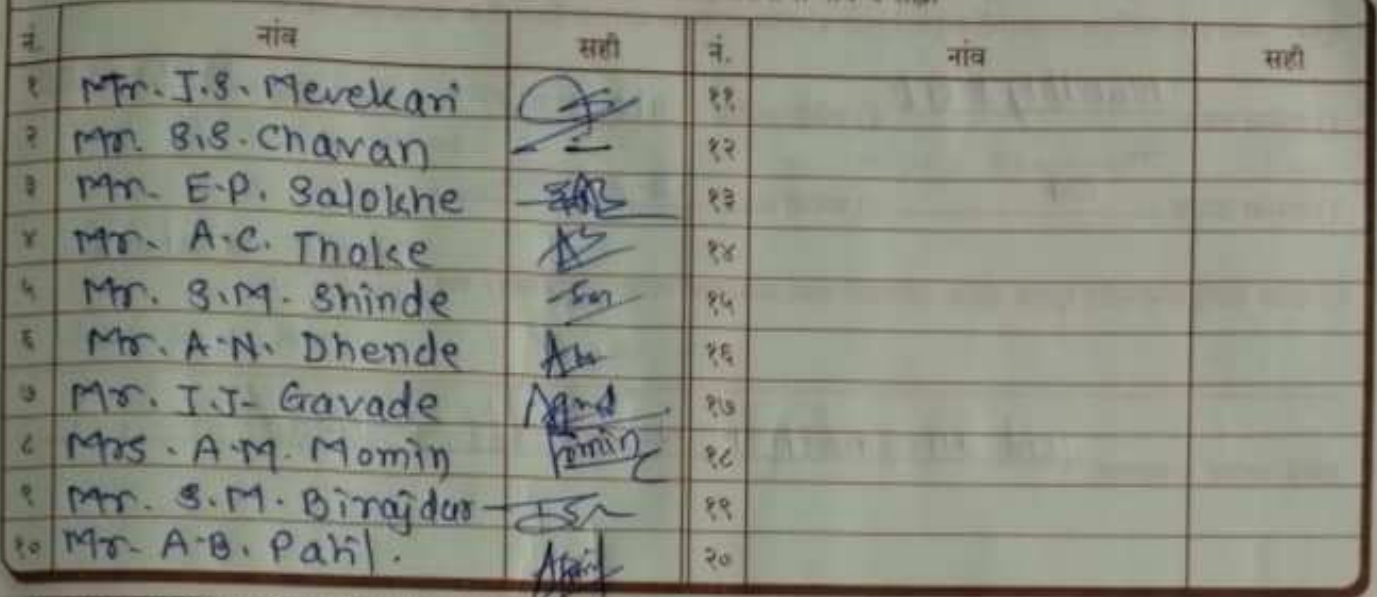 नं. नांव सही नं. नांव सही
१ Mr. J.S. Mevekari ११
२ Mr. S.S. Chavan १२
३ Mr. E.P. Salokhe १३
४ Mr. A.C. Thoke १४
५ Mr. S.M. Shinde १५
६ Mr. A.N. Dhende १६
७ Mr. I.J. Gavade १७
८ Mrs. A.M. Momin १८
९ Mr. S.M. Birajdar १९
१० Mr. A.B. Patil. २०